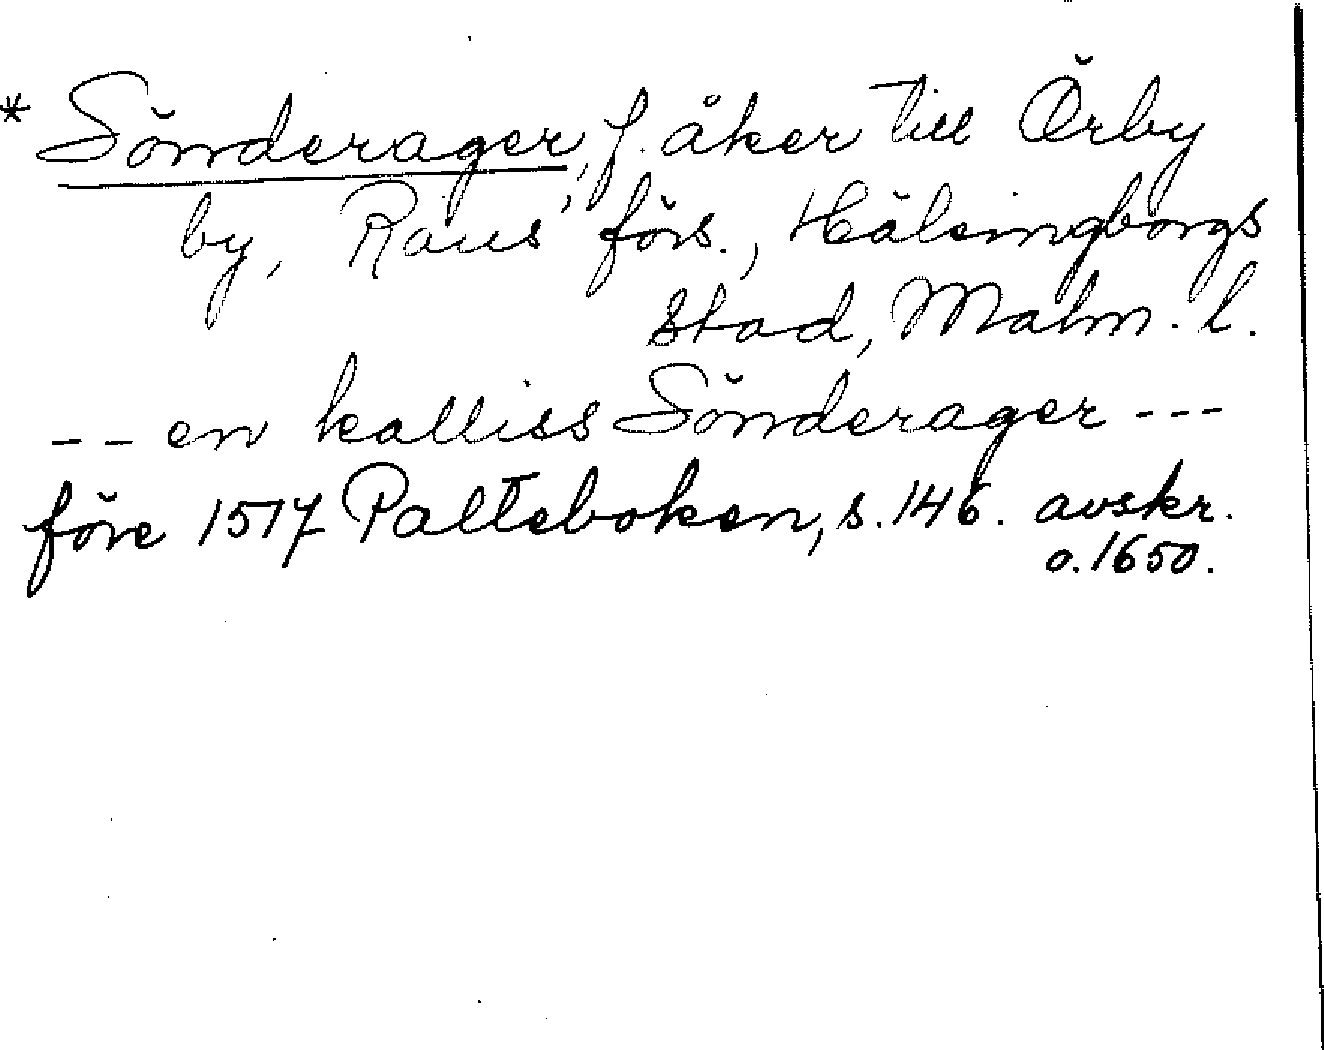 * Sönderager, f. åker till Örby
by, Raus' förs., Hälsingborgs
stad, Malm. l.
-- en kalliss Sönderager ---
före 1517 Palteboken, s. 146. avskr.
o. 1650.